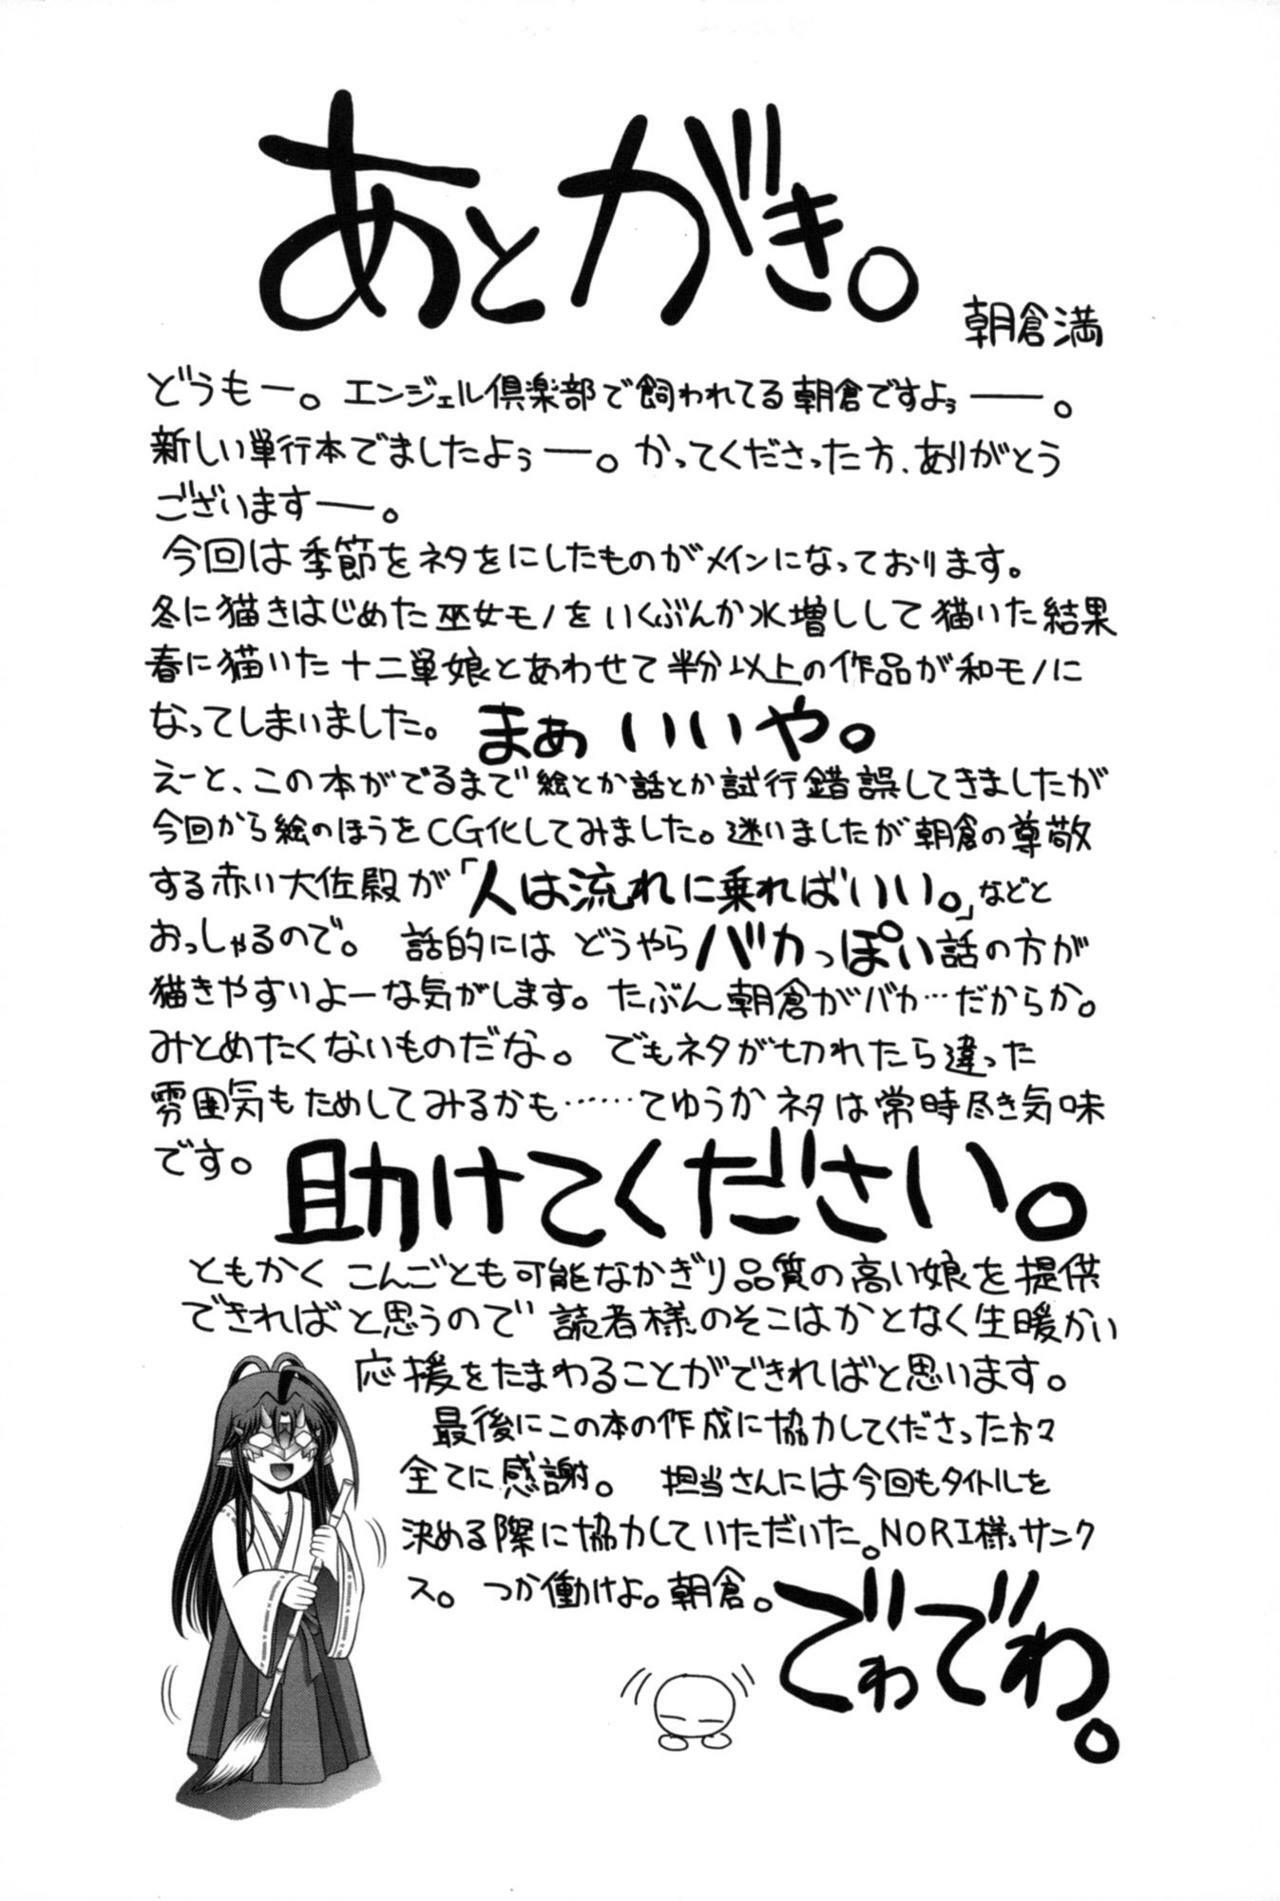 あとがき。
朝倉満
どうもー。エンジェル倶楽部で飼われてる朝倉ですよぅ――。
新しい単行本でましたよぅ―。かってくださった方、ありがとう
ございますー―。
今回は季節をネタをにしたものがメインになっております。
冬に猫きはじめた巫女モノをいくぶんか水増しして猫いた結果
春に猫いた十二単娘とあわせて半分以上の作品が和モノに
なってしまいました。まぁいいや。
えーと、この本がでるまで絵とか話とか試行錯誤してきましたが
今回から絵のほうをCG化してみました。迷いましたが朝倉の尊敬
する赤い大佐殿が「人は流れに乗ればいい。」などと
おっしゃるので。話的にはどうやらバカっぽい話の方が
猫きやすいよーな気がします。たぶん朝倉がバカ…だからか。
みとめたくないものだな。でもネタが切れたら違った
雰囲気もためしてみるかも……てゆうかネタは常時尽き気味
です。助けてください。
ともかくこんごとも可能なかぎり品質の高い娘を提供
できればと思うので読者様のそこはかとなく生暖かい
応援をたまわることができればと思います。
最後にこの本の作成に協力してくださった方々
全てに感謝。担当さんには今回もタイトルを
決める際に協力していただいた。NORI様サンク
ス。つか働けよ。朝倉。でわでわ。